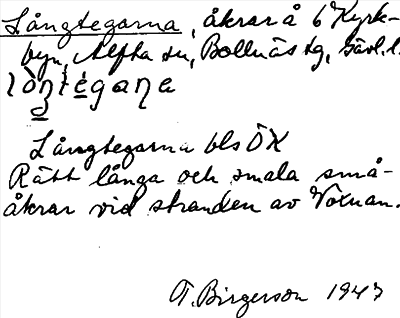 Långtegarna, åkrar å 6 Kyrk-
byn, Alfta sn, Bollnäs tg, Gävl. l.
Långtegarna bls ÖK
Rätt långa och smala små-
åkrar vid stranden av Voxnan.
T. Birgerson 1947